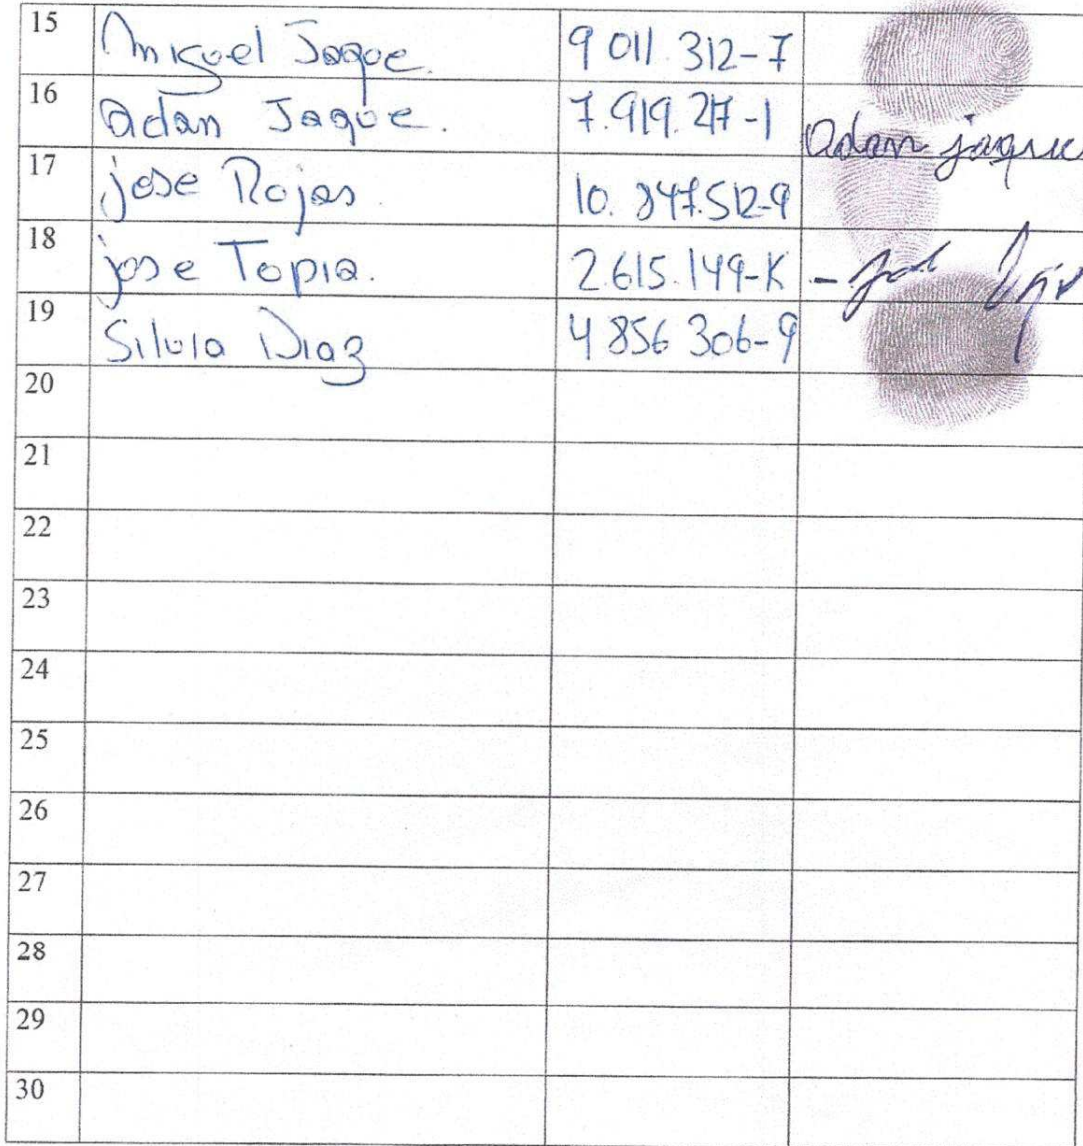 15 Miguel Jaque. 9 011. 312-7
16 Adan Jaque. 7.919.27-1 Adan jaque
17 jose Rojas 10.847.512-9
18 jose Tapia. 2.615.149-K
19 Silvia Diaz 4 856 306-9
20
21
22
23
24
25
26
27
28
29
30